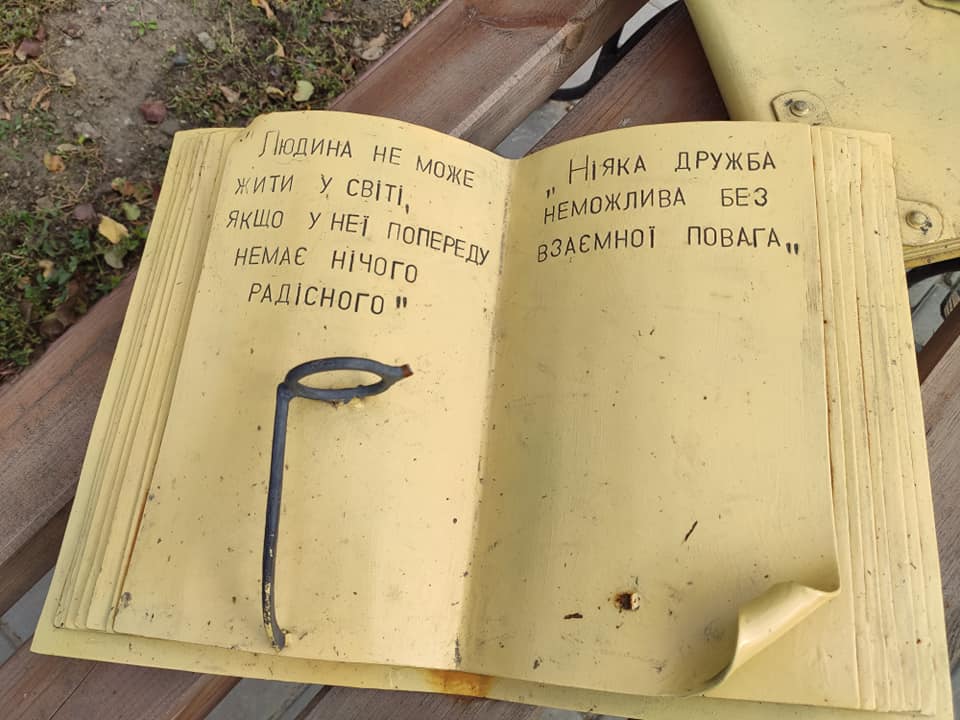 "Людина не може
жити у світі,
якщо у неї попереду
немає нічого
радісного"
„Ніяка дружба
неможлива без
взаємної повага„